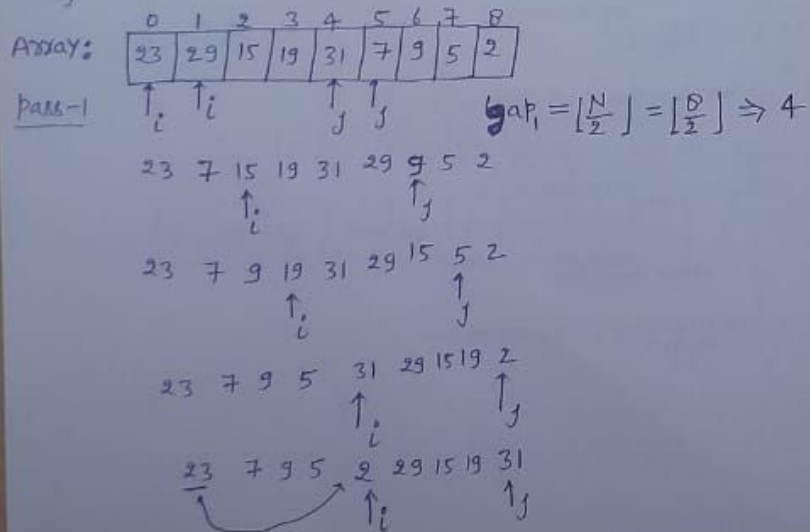 0 1 2 3 4 5 6 7 8
Array: 23 29 15 19 31 7 9 5 2
pass-1 i i j j gap₁ = ⌊N/2⌋ = ⌊9/2⌋ ⇒ 4
23 7 15 19 31 29 9 5 2
i j
23 7 9 19 31 29 15 5 2
i j
23 7 9 5 31 29 15 19 2
i j
23 7 9 5 2 29 15 19 31
i j